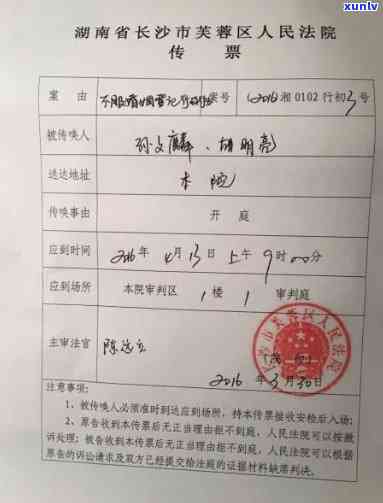 xunlv
湖南省长沙市芙蓉区人民法院
传票
案由 不服婚姻登记行政行为 案号 (2016)湘0102行初3号
被传唤人 孙文麟、胡明亮
送达地址 本院
传唤事由 开庭
应到时间 2016年4月13日上午9时00分
应到场所 本院审判区1楼1审判庭
主审法官
长沙市芙蓉区人民法院
2016年3月30日
注意事项:
1、被传唤人必须准时到达应到场所，持本传票接收安检后入场;
2、原告收到本传票后无正当理由拒不到庭，人民法院可以按撤
诉处理；被告收到本传票后无正当理由拒不到庭，人民法院可以根据
原告的诉讼请求及双方已经提交给法庭的证据材料缺席判决。